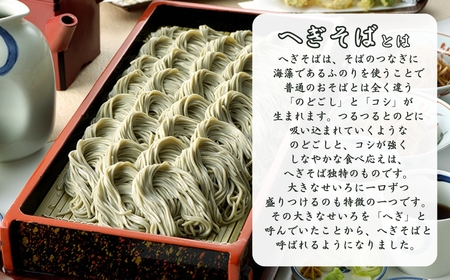 へぎそばとは
へぎそばは、そばのつなぎに
海藻であるふのりを使うことで
普通のおそばとは全く違う
「のどごし」と「コシ」が
生まれます。つるつるとのどに
吸い込まれていくような
のどごしと、コシが強く
しなやかな食べ応えは、
へぎそば独特のものです。
大きなせいろに一口ずつ
盛りつけるのも特徴の一つです。
その大きなせいろを「へぎ」と
呼んでいたことから、へぎそばと
呼ばれるようになりました。